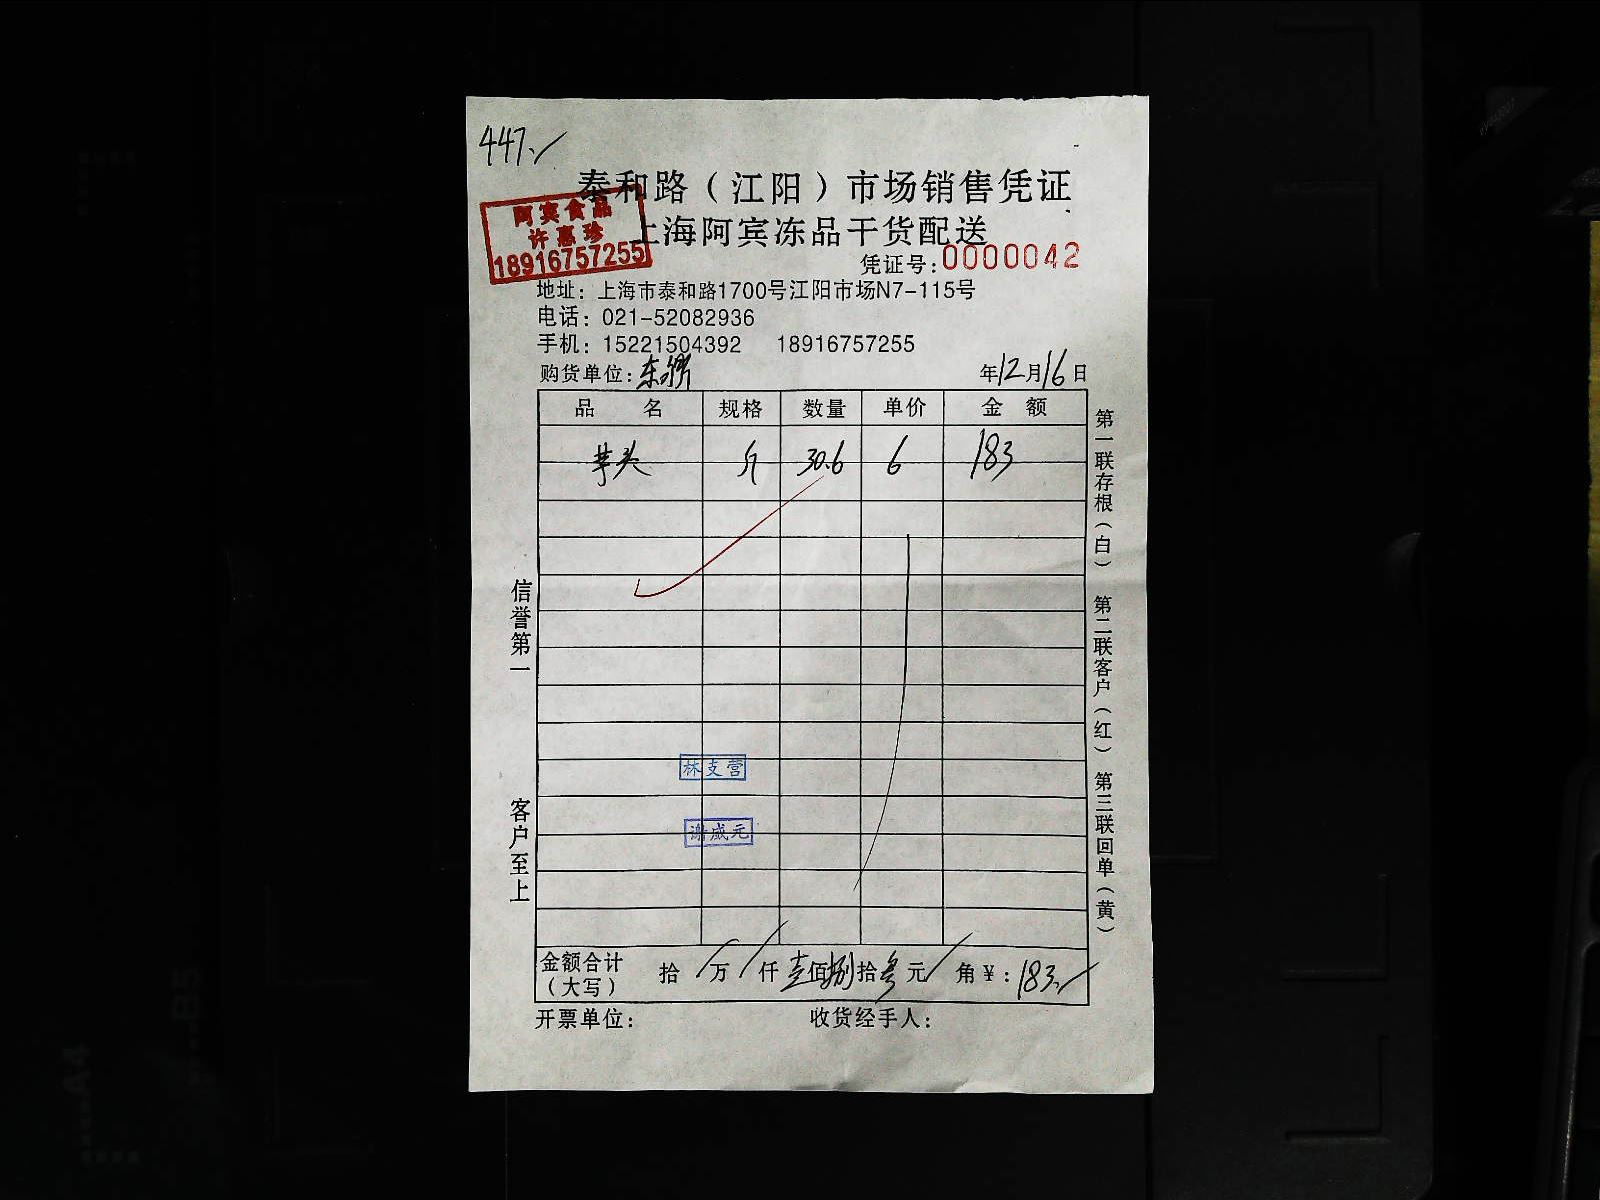 447.
泰和路（江阳）市场销售凭证
上海阿宾冻品干货配送
阿宾食品
许惠珍
18916757255
凭证号:0000042
地址：上海市泰和路1700号江阳市场N7-115号
电话：021-52082936
手机：15221504392 18916757255
购货单位: 年12月16日
品名 规格 数量 单价 金额
芋头 斤 30.6 6 183
信誉第一
客户至上
第一联存根（白） 第二联客户（红） 第三联回单（黄）
林支营
谢成元
金额合计（大写） 拾/万/仟壹佰捌拾叁元/角¥:183.
开票单位: 收货经手人: